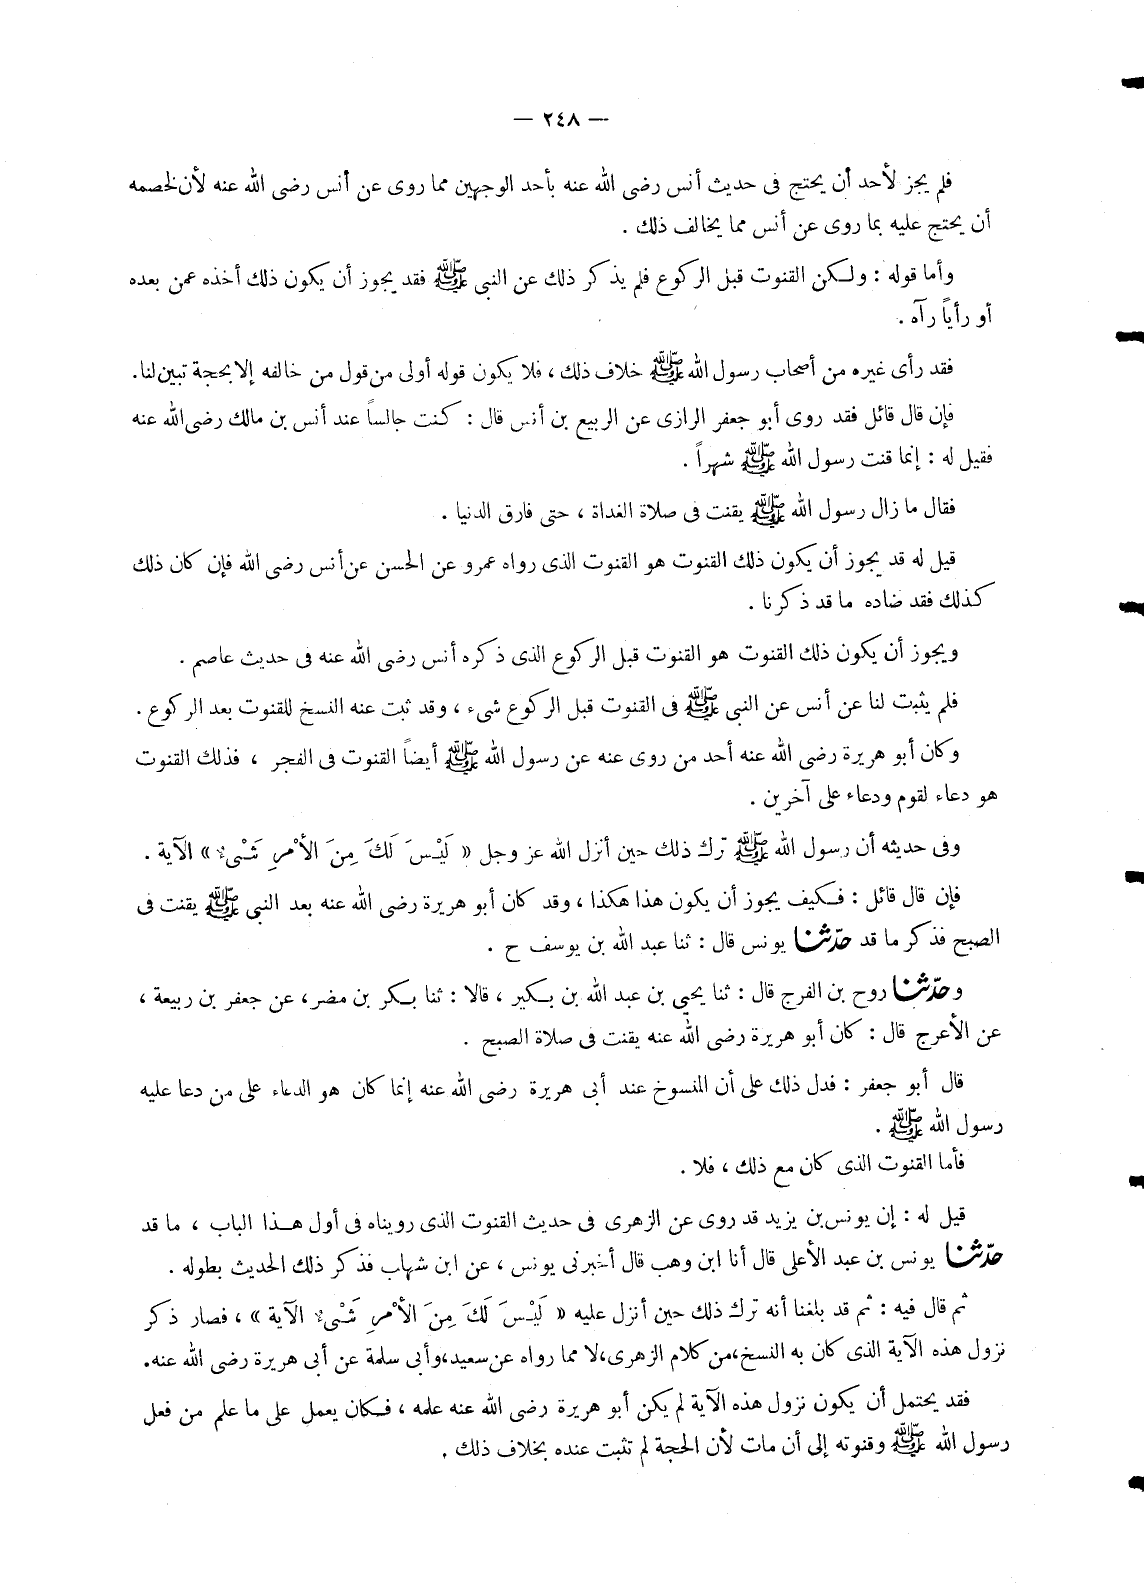 — ٢٤٨ —
فلم يجز لأحد أن يحتج فى حديث أنس رضى الله عنه بأحد الوجهين مما روى عن أنس رضى الله عنه لأن لخصمه
أن يحتج عليه بما روى عن أنس مما يخالف ذلك .
وأما قوله : ولكن القنوت قبل الركوع فلم يذكر ذلك عن النبى ﷺ فقد يجوز أن يكون ذلك أخذه عمن بعده
أو رأياً رآه .
فقد رأى غيره من أصحاب رسول الله ﷺ خلاف ذلك ، فلا يكون قوله أولى من قول من خالفه إلا بحجة تبين لنا.
فإن قال قائل فقد روى أبو جعفر الرازى عن الربيع بن أنس قال : كنت جالساً عند أنس بن مالك رضى الله عنه
فقيل له : إنما قنت رسول الله ﷺ شهراً .
فقال ما زال رسول الله ﷺ يقنت فى صلاة الغداة ، حتى فارق الدنيا .
قيل له قد يجوز أن يكون ذلك القنوت هو القنوت الذى رواه عمرو عن الحسن عن أنس رضى الله فإن كان ذلك
كذلك فقد ضاده ما قد ذكرنا .
ويجوز أن يكون ذلك القنوت هو القنوت قبل الركوع الذى ذكره أنس رضى الله عنه فى حديث عاصم .
فلم يثبت لنا عن أنس عن النبى ﷺ فى القنوت قبل الركوع شىء ، وقد ثبت عنه النسخ للقنوت بعد الركوع .
وكان أبو هريرة رضى الله عنه أحد من روى عنه عن رسول الله ﷺ أيضاً القنوت فى الفجر ، فذلك القنوت
هو دعاء لقوم ودعاء على آخرين .
وفى حديثه أن رسول الله ﷺ ترك ذلك حين أنزل الله عز وجل « لَيْسَ لَكَ مِنَ الأَمْرِ شَىْءٌ » الآية .
فإن قال قائل : فكيف يجوز أن يكون هذا هكذا ، وقد كان أبو هريرة رضى الله عنه بعد النبى ﷺ يقنت فى
الصبح فذكر ما قد حدّثنا يونس قال : ثنا عبد الله بن يوسف ح .
وحدّثنا روح بن الفرج قال : ثنا يحيى بن عبد الله بن بكير ، قالا : ثنا بكر بن مضر، عن جعفر بن ربيعة ،
عن الأعرج قال : كان أبو هريرة رضى الله عنه يقنت فى صلاة الصبح .
قال أبو جعفر : فدل ذلك على أن المنسوخ عند أبى هريرة رضى الله عنه إنما كان هو الدعاء على من دعا عليه
رسول الله ﷺ .
فأما القنوت الذى كان مع ذلك ، فلا .
قيل له : إن يونس بن يزيد قد روى عن الزهرى فى حديث القنوت الذى رويناه فى أول هذا الباب ، ما قد
حدّثنا يونس بن عبد الأعلى قال أنا ابن وهب قال أخبرنى يونس ، عن ابن شهاب فذكر ذلك الحديث بطوله .
ثم قال فيه : ثم قد بلغنا أنه ترك ذلك حين أنزل عليه « لَيْسَ لَكَ مِنَ الأَمْرِ شَىْءٌ الآية » ، فصار ذكر
نزول هذه الآية الذى كان به النسخ،من كلام الزهرى،لا مما رواه عن سعيد،وأبى سلمة عن أبى هريرة رضى الله عنه.
فقد يحتمل أن يكون نزول هذه الآية لم يكن أبو هريرة رضى الله عنه علمه ، فكان يعمل على ما علم من فعل
رسول الله ﷺ وقنوته إلى أن مات لأن الحجة لم تثبت عنده بخلاف ذلك .